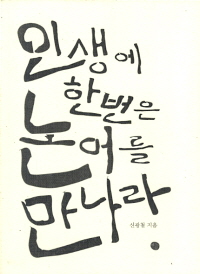 인생에
한번은
논어를
만나라.
신광철 지음